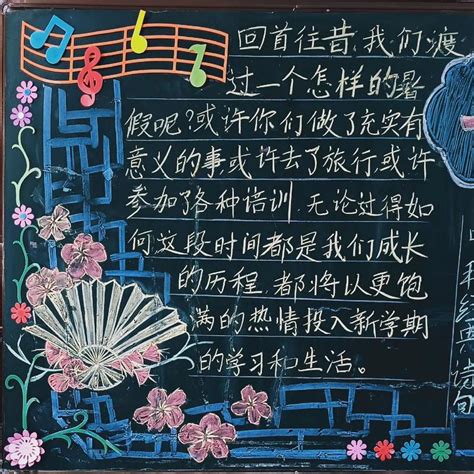 回首往昔,我们渡
过一个怎样的暑
假呢?或许你们做了充实有
意义的事或许去了旅行,或许
参加了各种培训.无论过得如
何,这段时间都是我们成长
的历程.都将以更饱
满的热情投入新学期
的学习和生活。